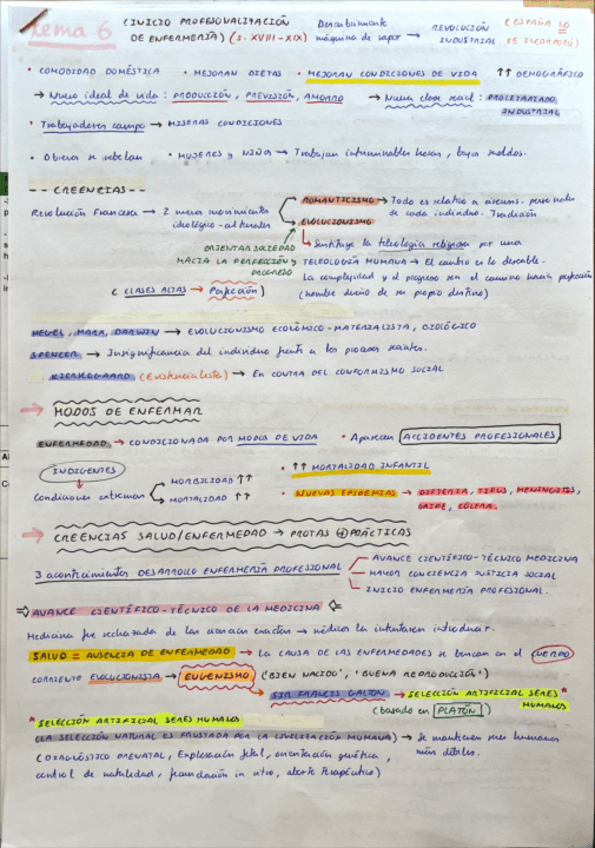 Tema 6 (INICIO PROFESIONALIZACIÓN DE ENFERMERÍA) (s. XVIII-XIX) Descubrimiento máquina de vapor → REVOLUCIÓN INDUSTRIAL (ESPAÑA NO SE INCORPORÓ)
• COMODIDAD DOMÉSTICA • MEJORAN DIETAS • MEJORAN CONDICIONES DE VIDA ↑↑ DEMOGRÁFICO
→ Nuevo ideal de vida: PRODUCCIÓN, PREVISIÓN, AHORRO → Nueva clase social: PROLETARIADO INDUSTRIAL
• Trabajadores campo → MISERAS CONDICIONES
• Obreros se rebelan • MUJERES y NIÑOS → Trabajan interminables horas, bajos sueldos.
-- CREENCIAS --
Revolución Francesa → 2 nuevos movimientos ideológico-culturales
ROMANTICISMO → Todo es relativo a circuns. personales de cada individuo. Tradición
EVOLUCIONISMO
ORIENTAR SOCIEDAD HACIA LA PERFECCIÓN y PROGRESO
↳ Sustituye la teleología religiosa por una
TELEOLOGÍA HUMANA → El cambio es lo deseable.
La complejidad y el progreso son el camino hacia perfección
(CLASES ALTAS → Perfección) (hombre dueño de su propio destino)
HEGEL, MARX, DARWIN → EVOLUCIONISMO ECONÓMICO-MATERIALISTA, BIOLÓGICO
SPENCER → Insignificancia del individuo frente a los procesos sociales.
KIERKEGAARD (Existencialista) → EN CONTRA DEL CONFORMISMO SOCIAL
→ MODOS DE ENFERMAR
ENFERMEDAD → CONDICIONADA POR MODOS DE VIDA • Aparecen ACCIDENTES PROFESIONALES
INDIGENTES • ↑↑ MORTALIDAD INFANTIL
Condiciones extremas MORBILIDAD ↑↑
MORTALIDAD ↑↑
• NUEVAS EPIDEMIAS → DIFTERIA, TIFUS, MENINGITIS, GRIPE, CÓLERA.
→ CREENCIAS SALUD/ENFERMEDAD → PROTAS (+) PRÁCTICAS
3 acontecimientos DESARROLLO ENFERMERÍA PROFESIONAL
AVANCE CIENTÍFICO-TÉCNICO MEDICINA
MAYOR CONCIENCIA JUSTICIA SOCIAL
INICIO ENFERMERÍA PROFESIONAL.
⇒ AVANCE CIENTÍFICO-TÉCNICO DE LA MEDICINA ⇐
Medicina fue rechazada de las ciencias exactas → médicos la intentaron introducir.
SALUD = AUSENCIA DE ENFERMEDAD → LA CAUSA DE LAS ENFERMEDADES se buscan en el CUERPO
CORRIENTE EVOLUCIONISTA → EUGENISMO ('BIEN NACIDO', 'BUENA REPRODUCCIÓN')
↳ SIR FRANCIS GALTON → SELECCIÓN ARTIFICIAL SERES HUMANOS *
(basado en PLATÓN)
* SELECCIÓN ARTIFICIAL SERES HUMANOS
(LA SELECCIÓN NATURAL ES FRUSTADA POR LA CIVILIZACIÓN HUMANA) → Se mantienen seres humanos más débiles.
(DIAGNÓSTICO PRENATAL, Exploración fetal, orientación genética,
control de natalidad, fecundación in vitro, aborto terapéutico)